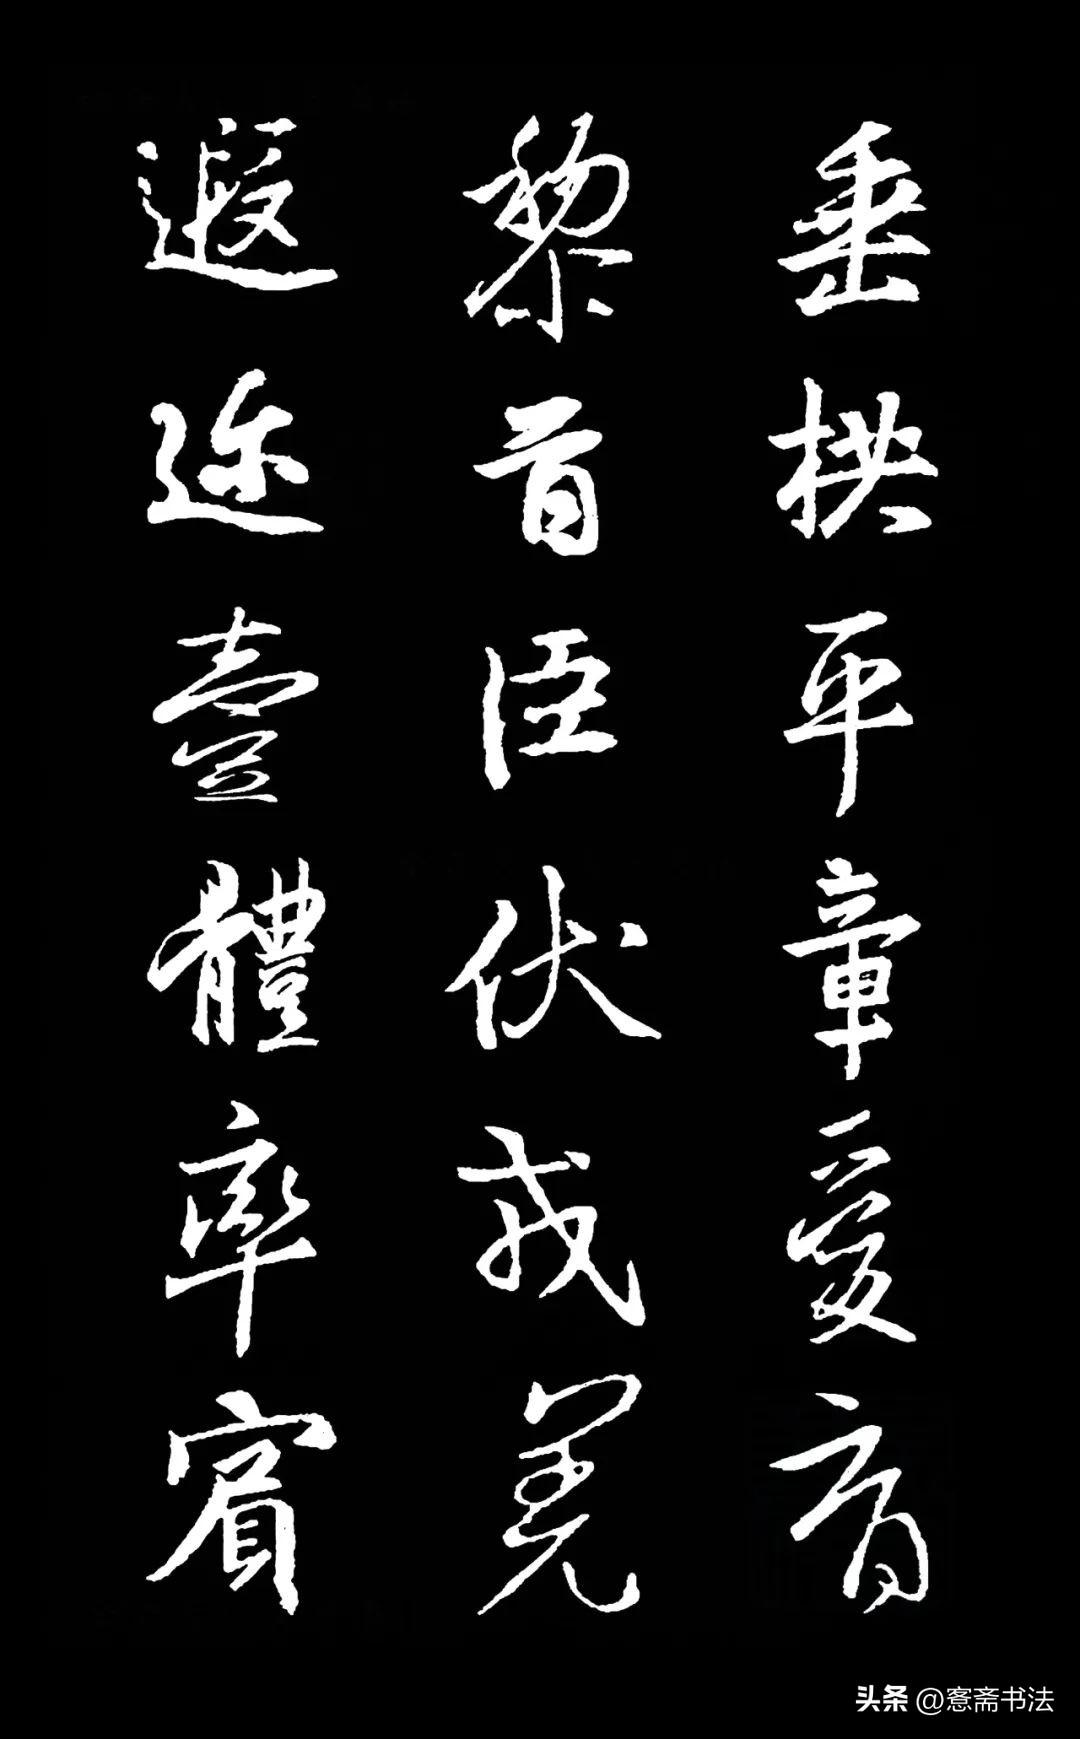 垂拱平章愛育
黎首臣伏戎羌
遐迩壹體率賓
头条 @窓斋书法